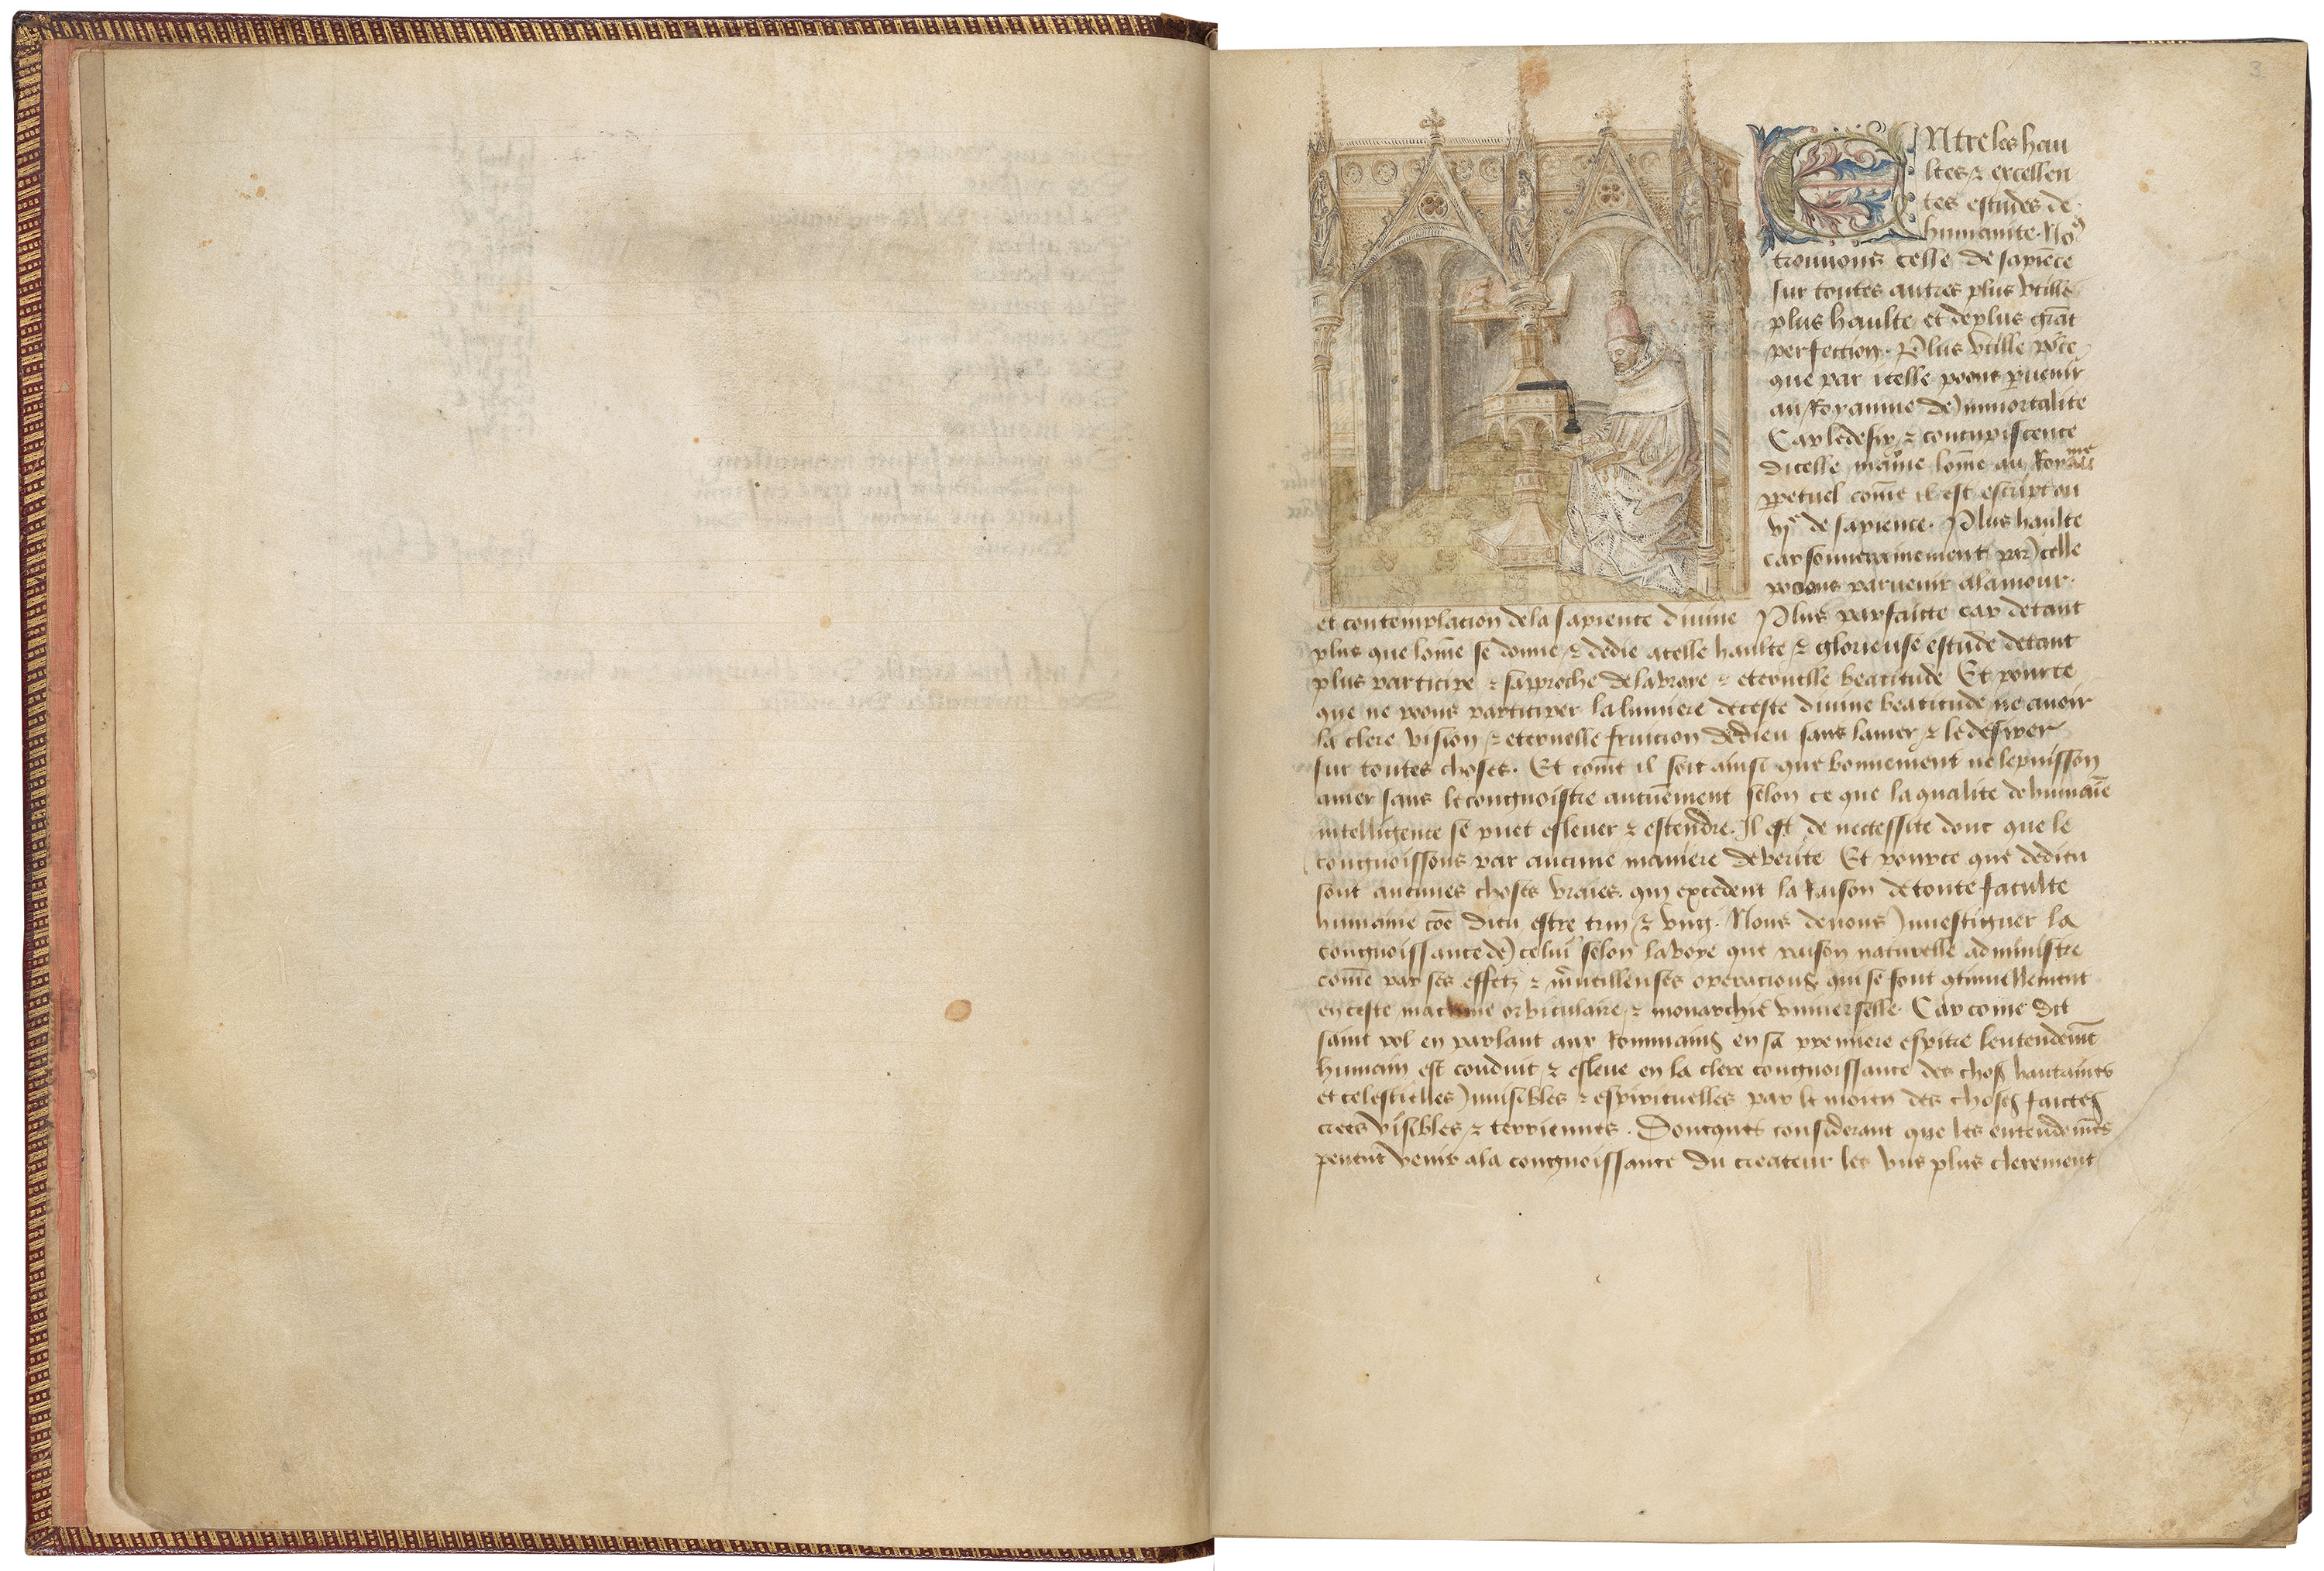 3
ENtre les hau
ltes ⁊ excellen
tes estudes de
humanite. No⁹
trouuons celle de sapiēce
sur toutes autres plus vtille
plus haulte et de plus grāt
perfection. Plus vtille po'ce
que par icelle poons puenir
au Royaume de Jmmortalite
Car le desir ⁊ concupiscence
dicelle maine lōme au Royaume
ppetuel cōme il est escript ou
vjᵉ de sapience. Plus haulte
car souuerainement par Jcelle
poons paruenir a lamour.
et contemplacion de la sapience diuine Plus parfaitte car de tant
plus que lōme se donne ⁊ dedie a celle haulte ⁊ glorieuse estude de tant
plus participe ⁊ sapproche de la vraye ⁊ eternelle beatitude Et pource
que ne poons participer la lumiere de ceste diuine beatitude ne auoir
la clere vision ⁊ eternelle fruicion de dieu sans lamer ⁊ le desirer
sur toutes choses. Et cōme il soit ainsi que bonnement ne le puisson
amer sans le congnoistre aucūement selon ce que la qualite de humaīe
intelligence se puet esleuer ⁊ estendre. Il est de necessite donc que le
congnoissons par aucune maniere de verite Et pource que de dieu
sont aucunes choses vraies. qui excedent la Raison de toute faculte
humaine cōe dieu estre trin ⁊ vng. Nous deuons Jnuestiguer la
congnoissance de Jcelui selon la voye que raison naturelle administre
cōme par ses effetz ⁊ mueilleuses operacions qui se font gtinuellement
en ceste machine orbiculaire ⁊ monarchie vniuerselle. Car come dit
saint pol en parlant aux Rommains en sa premiere espitre lentendemēt
humain est conduit ⁊ esleue en la clere congnoissance des choses haultaines
et celestielles Jnuisibles ⁊ espirituelles par le moien des choses faictes
crees visibles ⁊ terriennes. Doncques considerant que les entendemēs
peuent venir a la congnoissance du createur les vns plus clerement